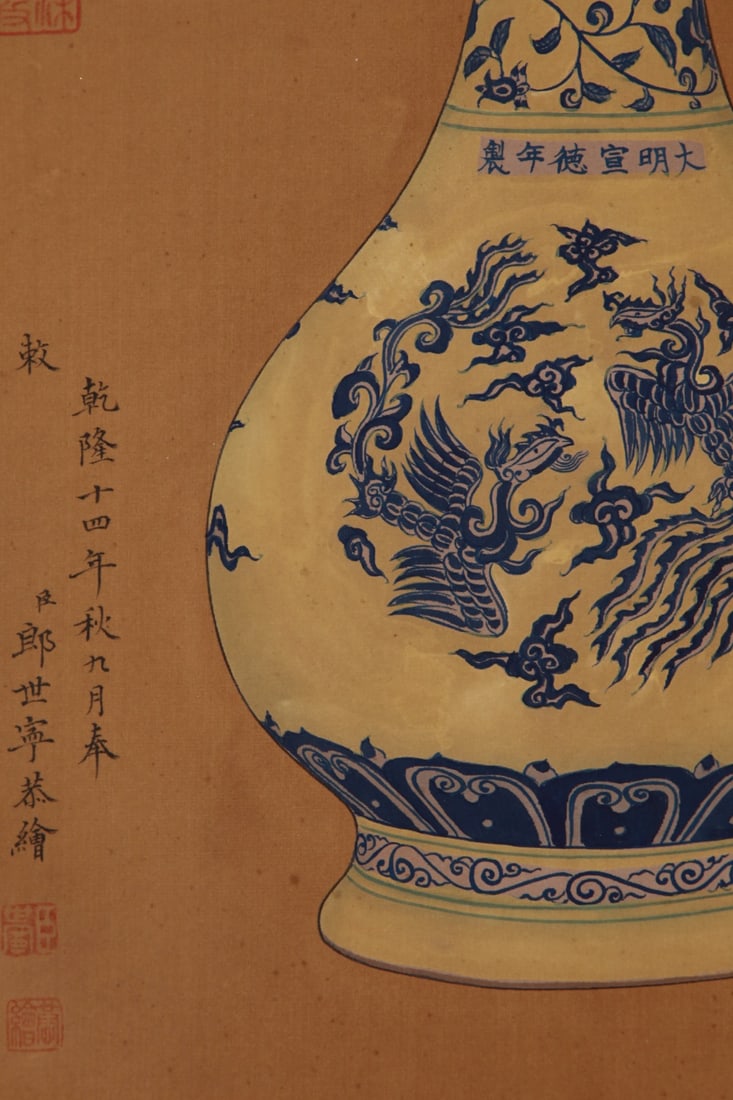 大明宣徳年製
乾隆十四年秋九月奉
敕
臣郎世寧恭繪